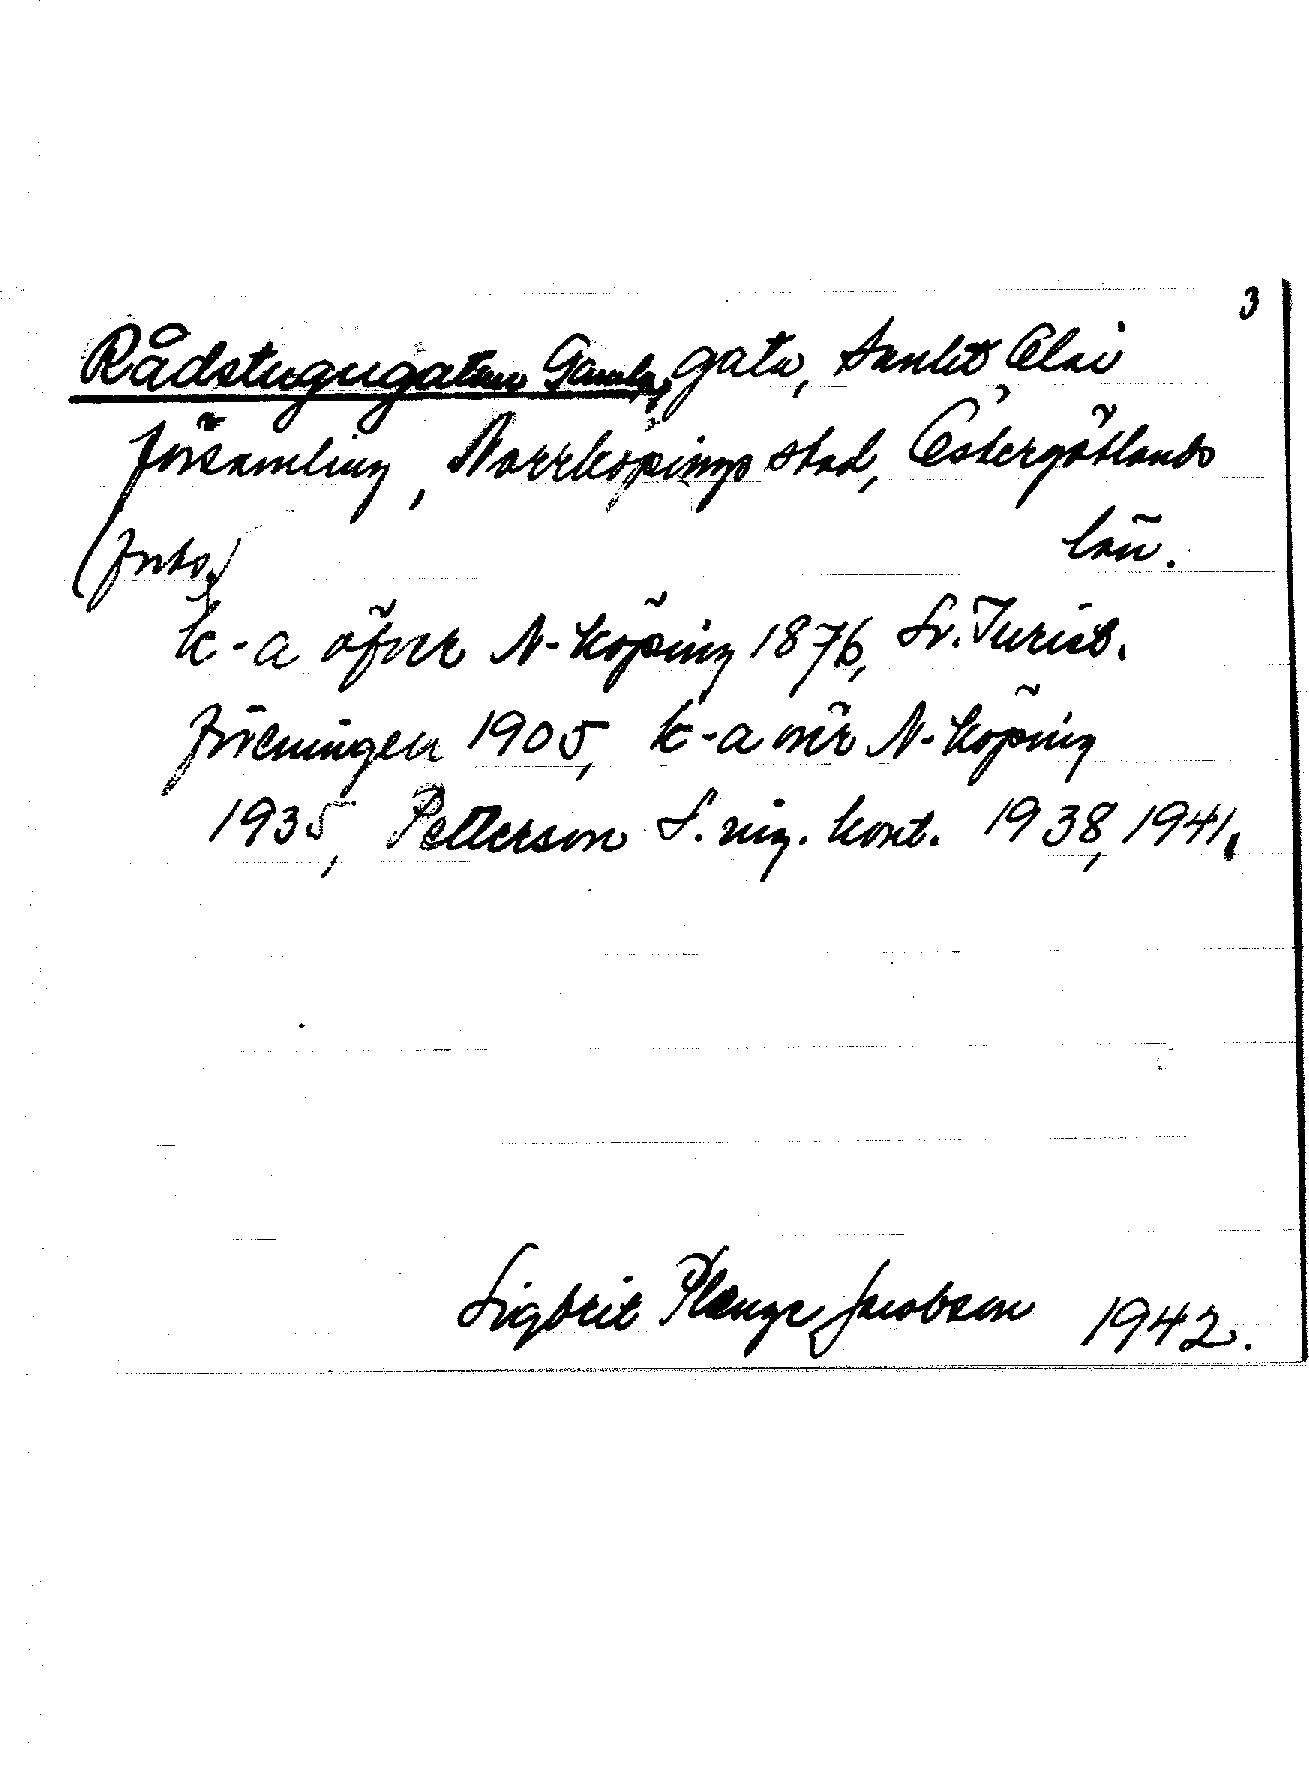 3
Rådstugugatan Gamla, gata, Sankt Olai
församling, Norrköpings stad, Östergötlands
(forts.) län.
k-a öfver N-köping 1876, Sv. Turist.
föreningen 1905, k-a över N-köping
1935, Petterson S. rig. kort. 1938, 1941.
Sigbrit Plænge Jacobson 1942.